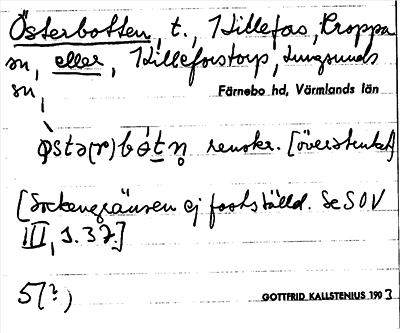 Österbotten, t., Hillefors, Kroppa
sn, eller, Hilleforstorp, Lungsunds
sn,
Färnebo hd, Värmlands län
renskr. [överstruket]
[Sockengränsen ej fastställd. Se SOV
III, s. 37.]
5(?)
GOTTFRID KALLSTENIUS 1903